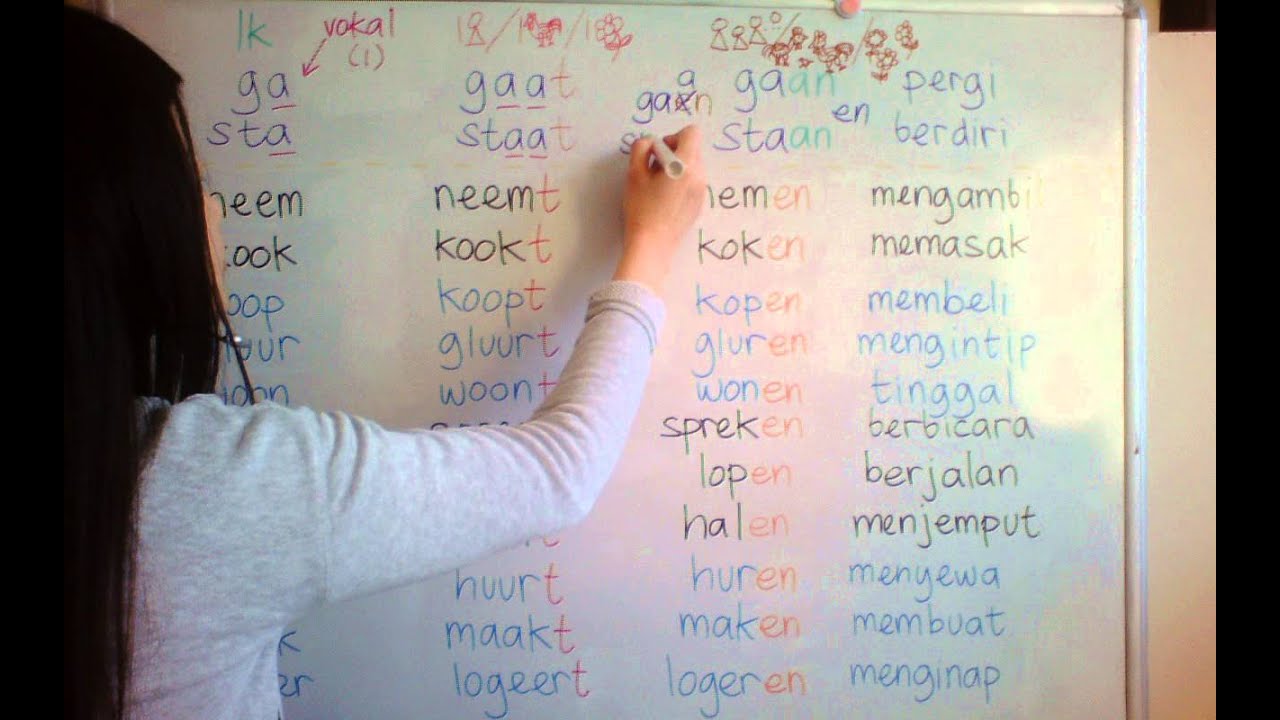 Ik vokal
(1)
ga gaat gaan gaan pergi
a en
sta staat staan berdiri
neem neemt nemen mengambil
kookt koken memasak
koopt kopen membeli
gluurt gluren mengintip
woont wonen tinggal
spreken berbicara
lopen berjalan
halen menjemput
huurt huren menyewa
maakt maken membuat
logeert logeren menginap